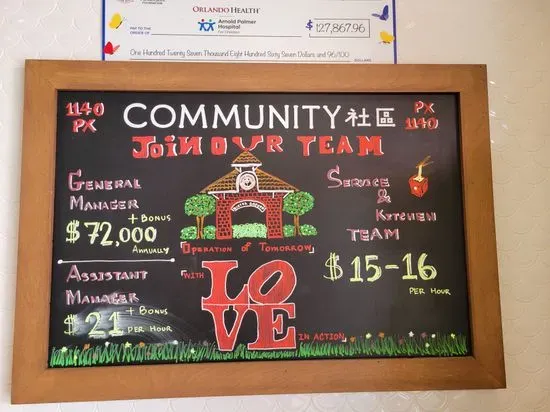 ORLANDO HEALTH
PAY TO THE
ORDER OF
Arnold Palmer
Hospital
For Children
$127,867.96
One Hundred Twenty Seven Thousand Eight Hundred Sixty Seven Dollars and 96/100
DOLLARS
1140
PX
COMMUNITY 社區
PX
1140
JOIN OUR TEAM
GENERAL
MANAGER
+ BONUS
$72,000
ANNUALLY
ASSISTANT
MANAGER
+ BONUS
$21 PER HOUR
OPERATION OF TOMORROW
WITH
LOVE
IN ACTION
SERVICE
&
KITCHEN
TEAM
$15-16
PER HOUR